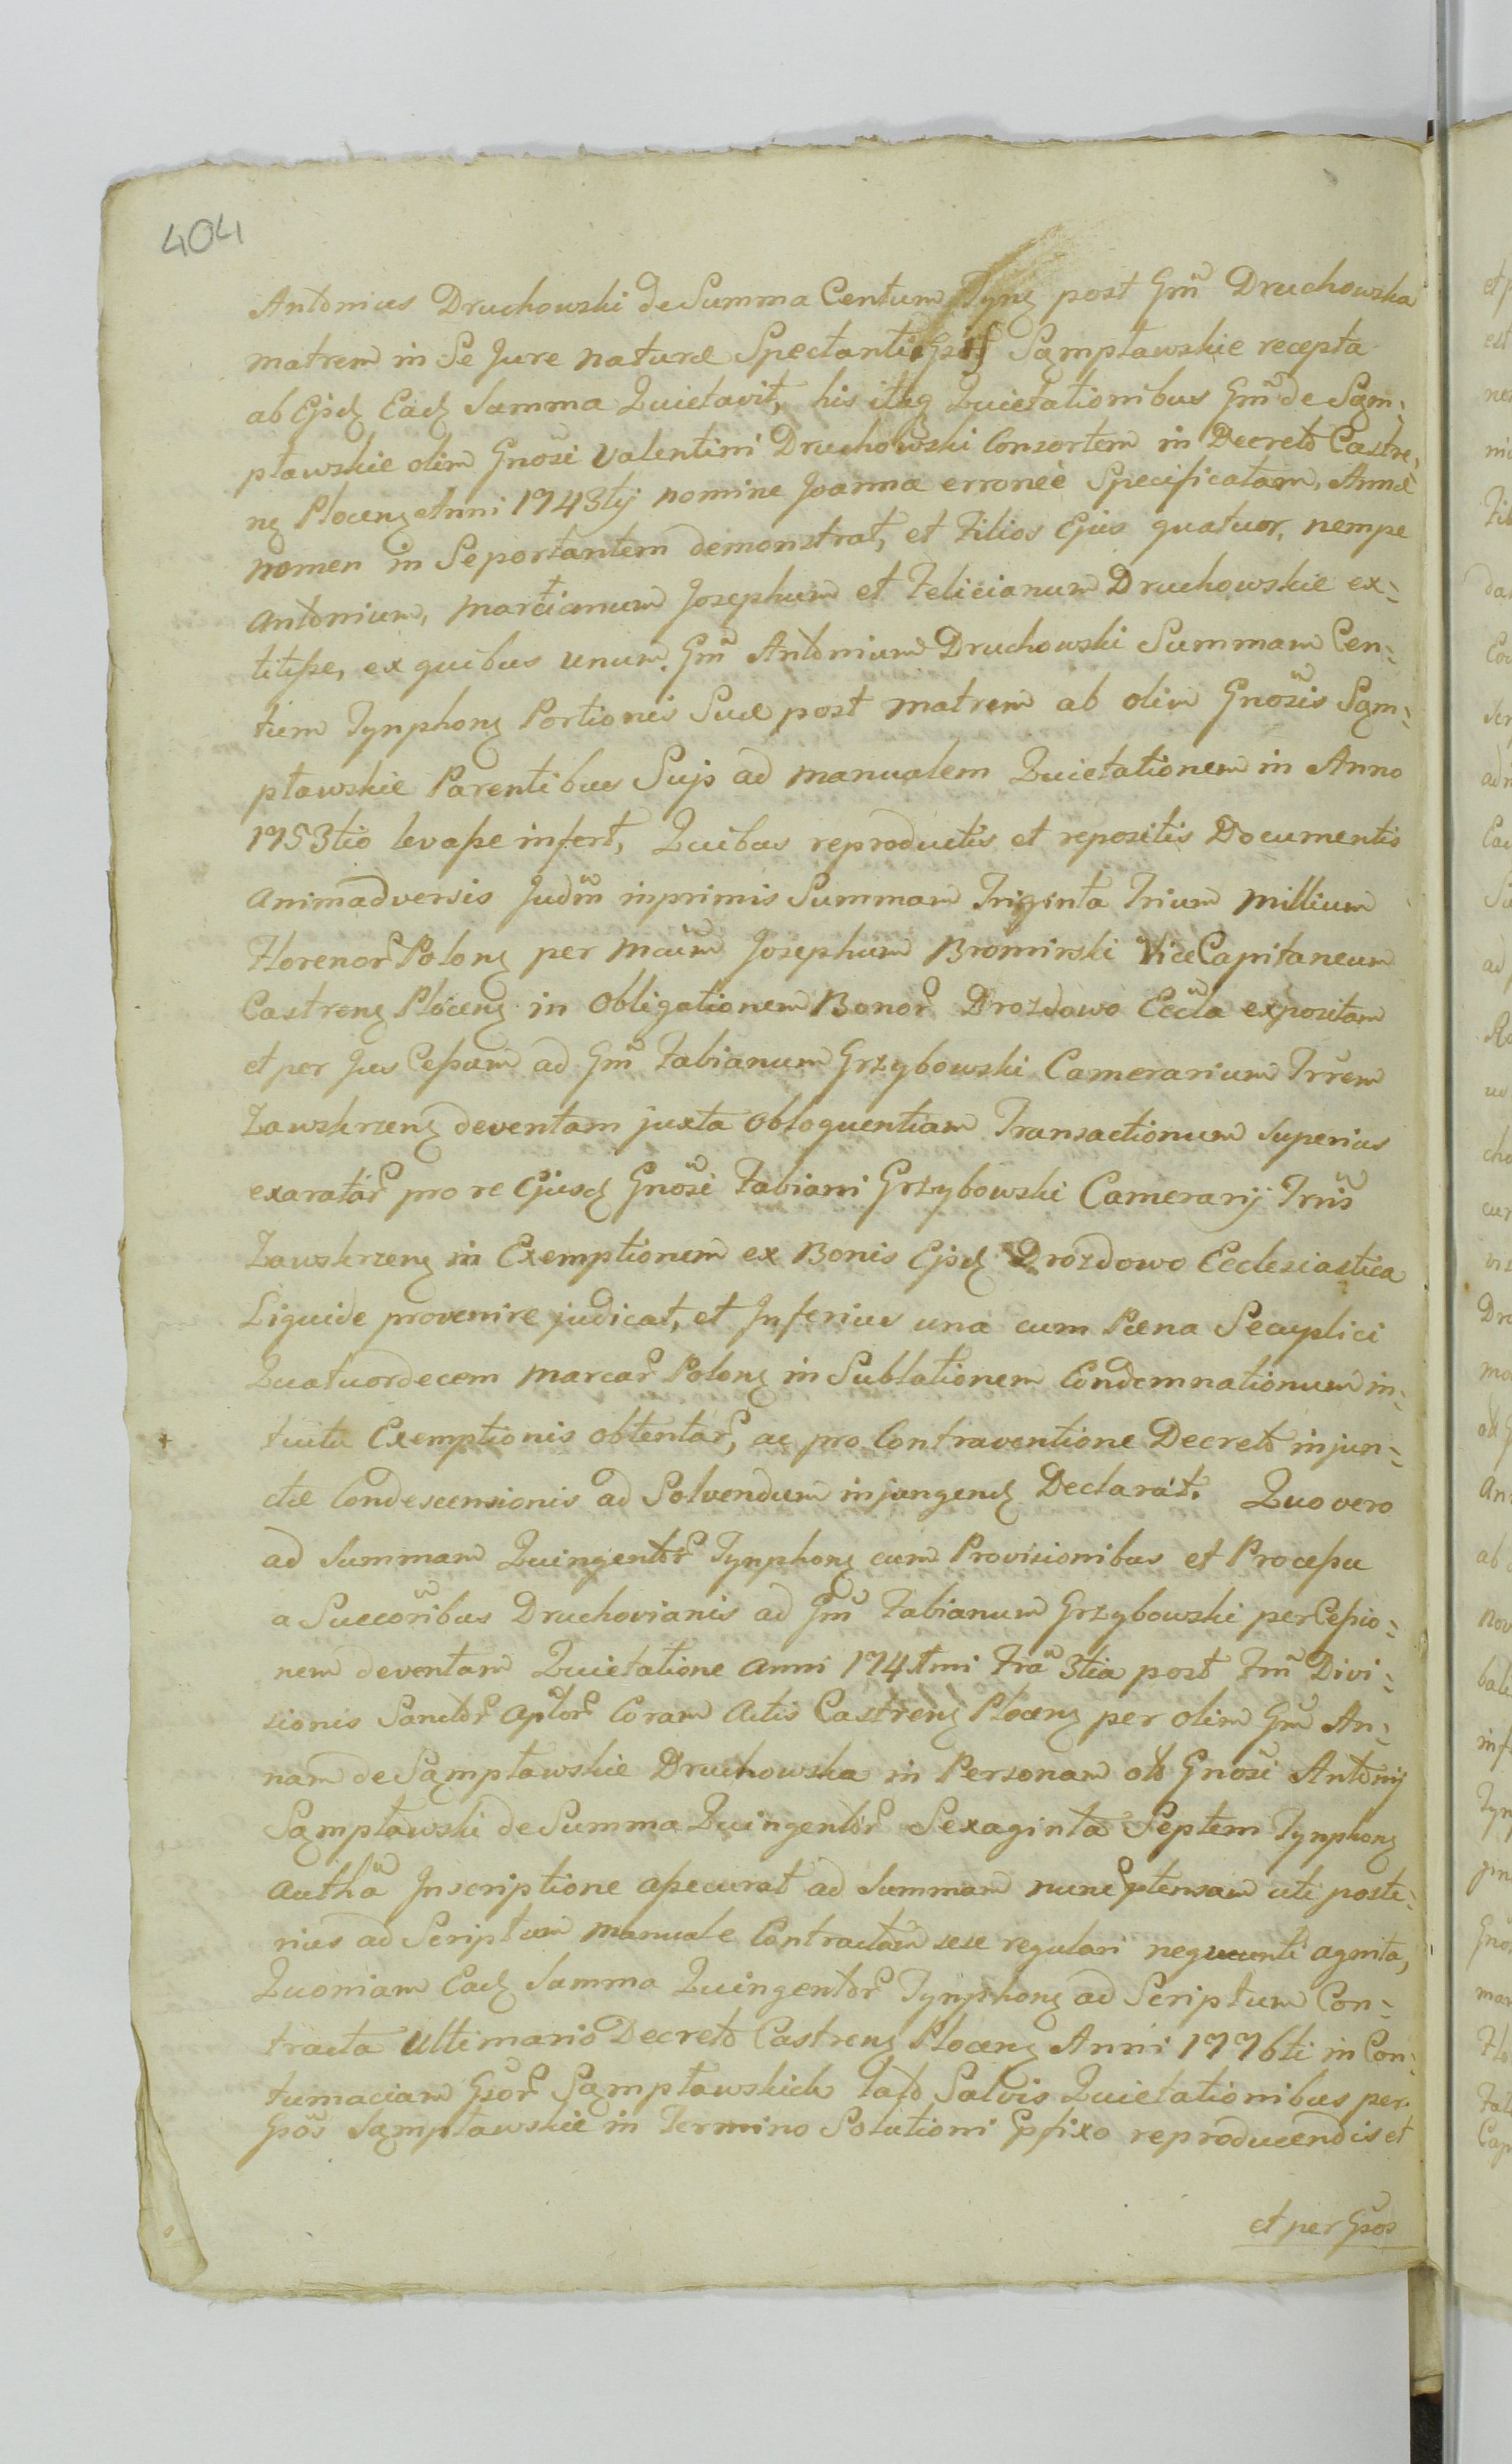 404
Antonius Druchowski de Summa Centum Tynq post Gm̃ Druchowska
matrem in Se Jure naturæ Spectanti Sąmpławskie recepta
ab Ejsd Ead Summa Quietavit, his itaq Quietationibus Gm̃ de Sąm=
pławskie olim Gnõsi Valentini Druchowski Consortem in Decreto Castre=
nq Plocenq Anni 1743tij nomine Joanna erroneè Specificatam, Annæ
nomen in Se portantem demonstrat, et Filios Ejus quatuor, nempe
Antonium, Martianum Josephum et Felicianum Druchowskie ex=
titiße, ex quibus unum Gm̃ Antonium Druchowski Summam Cen=
tum Tynphonq Portionis Suæ post matrem ab olim Gnõsis Sąm=
pławskie Parentibus Sujs ad manualem Quietationem in Anno
1753tio levaße infert, Quibus reproductis et repositis Documentis
animadversis Judm̃ inprimis Summam Triginta Trium Millium
Florenor Polonq per Mcũm Josephum Bromirski ViceCapitaneum
Castrenq Plocenq in Obligationem Bonor Drozdowo Eccla expositam
et per Jus Ceßum ad Gm̃ Fabianum Grzybowski Camerarium Trrem
Zawskrzenq deventam juxta obloquentiam Transactionum superius
exaratar pro re Ejusd Gnõsi Fabiani Grzybowski Camerarij Trris
Zawskrzenq in Exemptionem ex Bonis Ejsd Drozdowo Ecclesiastica
Liquide provenire judicat, et Inferius una cum Pæna Secuplici
Quatuordecem Marcar Polonq in Sublationem Condemnationum in=
+ tuitu Exemptionis obtentar, ac pro Contraventione Decreto injun=
ctæ Condescensionis ad Solvendum injungend Declarat. Quo vero
ad Summam Quingentor Tynphonq cum Provisionibus et Proceßu
a Succõribus Druchovianis ad Gm̃ Fabianum Grzybowski per Ceßio=
nem deventam Quietatione Anni 1741mi Fra 3tia post Fm̃ Divi=
sionis Sanctor Aplor Coram Actis Castrenq Plocenq per olim Gm̃ An=
nam de Sąmpławskie Druchowska in Personam olo Gnõsi Antonij
Sąmpławski de Summa Quingentor Sexaginta Septem Tynphonq
Autha Inscriptione aßecurat ad Summam nunc ptensam uti poste=
rius ad Scriptum manuale Contractam sese regulari nequeunti agnita,
Quoniam Ead Summa Quingentor Tynphonq ad Scriptum Con=
tracta Ultimario Decreto Castrenq Plocenq Anni 1776ti in Con=
tumaciam Gsor Sąmpławskich lato Salvis Quietationibus per
Gsos Sąmpławskie in Termino Solutioni pfixo reproducendis et
et per Gsos